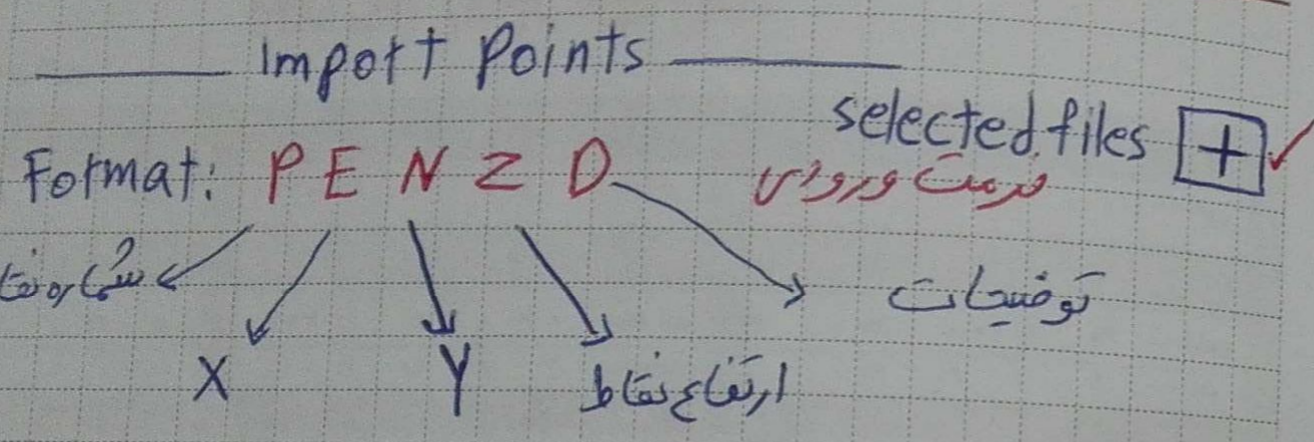 Import Points
selected files +
Format: P E N Z D
فرمت ورودی
شماره نقا
توضیحات
X Y ارتفاع نقاط